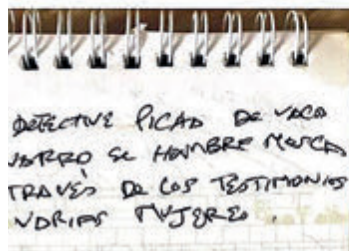 DETECTIVE PICAD DE VACA
NARRO SE HOMBRE MARCA
TRAVÉS DE LOS TESTIMONIOS
VARIAS MUJERES.